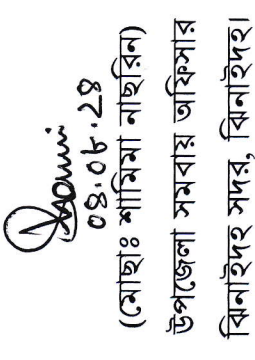 ০৪.০৮.২৪
(মোছাঃ শামিমা নাছরিন)
উপজেলা সমবায় অফিসার
ঝিনাইদহ সদর, ঝিনাইদহ।